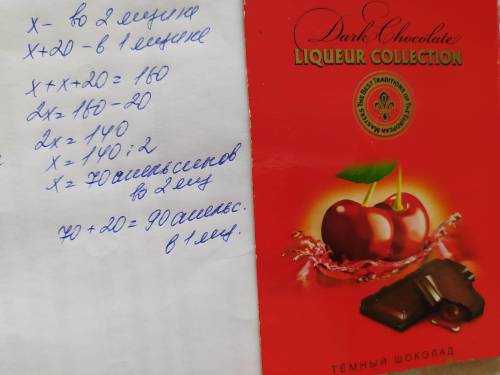 х – во 2 ящике
х+20 – в 1 ящике
х+х+20=160
2х=160-20
2х=140
х=140:2
х=70 апельсинов
во 2 ящ
70+20=90 апельс.
в 1 ящ.
Dark Chocolate
LIQUEUR COLLECTION
THE BEST TRADITIONS OF THE EUROPEAN MASTERS
ТЁМНЫЙ ШОКОЛАД